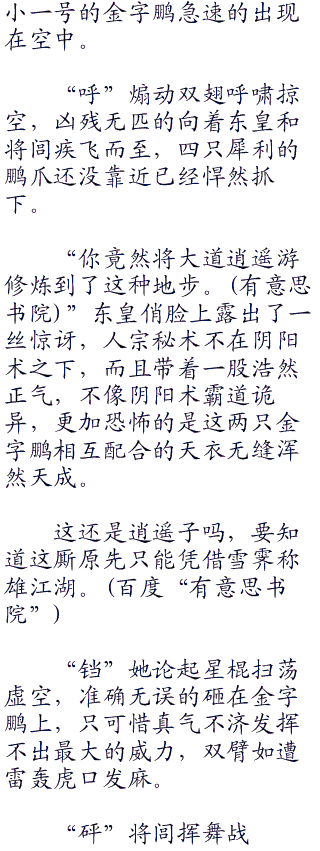 小一号的金字鹏急速的出现
在空中。
“呼”煽动双翅呼啸掠
空，凶残无匹的向着东皇和
将闾疾飞而至，四只犀利的
鹏爪还没靠近已经悍然抓
下。
“你竟然将大道逍遥游
修炼到了这种地步。(有意思
书院)”东皇俏脸上露出了一
丝惊讶，人宗秘术不在阴阳
术之下，而且带着一股浩然
正气，不像阴阳术霸道诡
异，更加恐怖的是这两只金
字鹏相互配合的天衣无缝浑
然天成。
这还是逍遥子吗，要知
道这厮原先只能凭借雪霁称
雄江湖。(百度“有意思书
院”)
“铛”她论起星棍扫荡
虚空，准确无误的砸在金字
鹏上，只可惜真气不济发挥
不出最大的威力，双臂如遭
雷轰虎口发麻。
“砰”将闾挥舞战